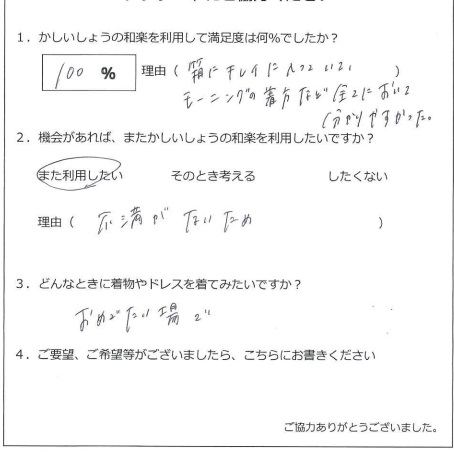 1．かしいしょうの和楽を利用して満足度は何％でしたか？
100 ％ 理由（ 箱にキレイに入っていて、 ）
モーニングの着方など全てにおいて
分かりやすかった。
2．機会があれば、またかしいしょうの和楽を利用したいですか？
また利用したい そのとき考える したくない
理由（ 不満がないため ）
3．どんなときに着物やドレスを着てみたいですか？
おめでたい場で
4．ご要望、ご希望等がございましたら、こちらにお書きください
ご協力ありがとうございました。